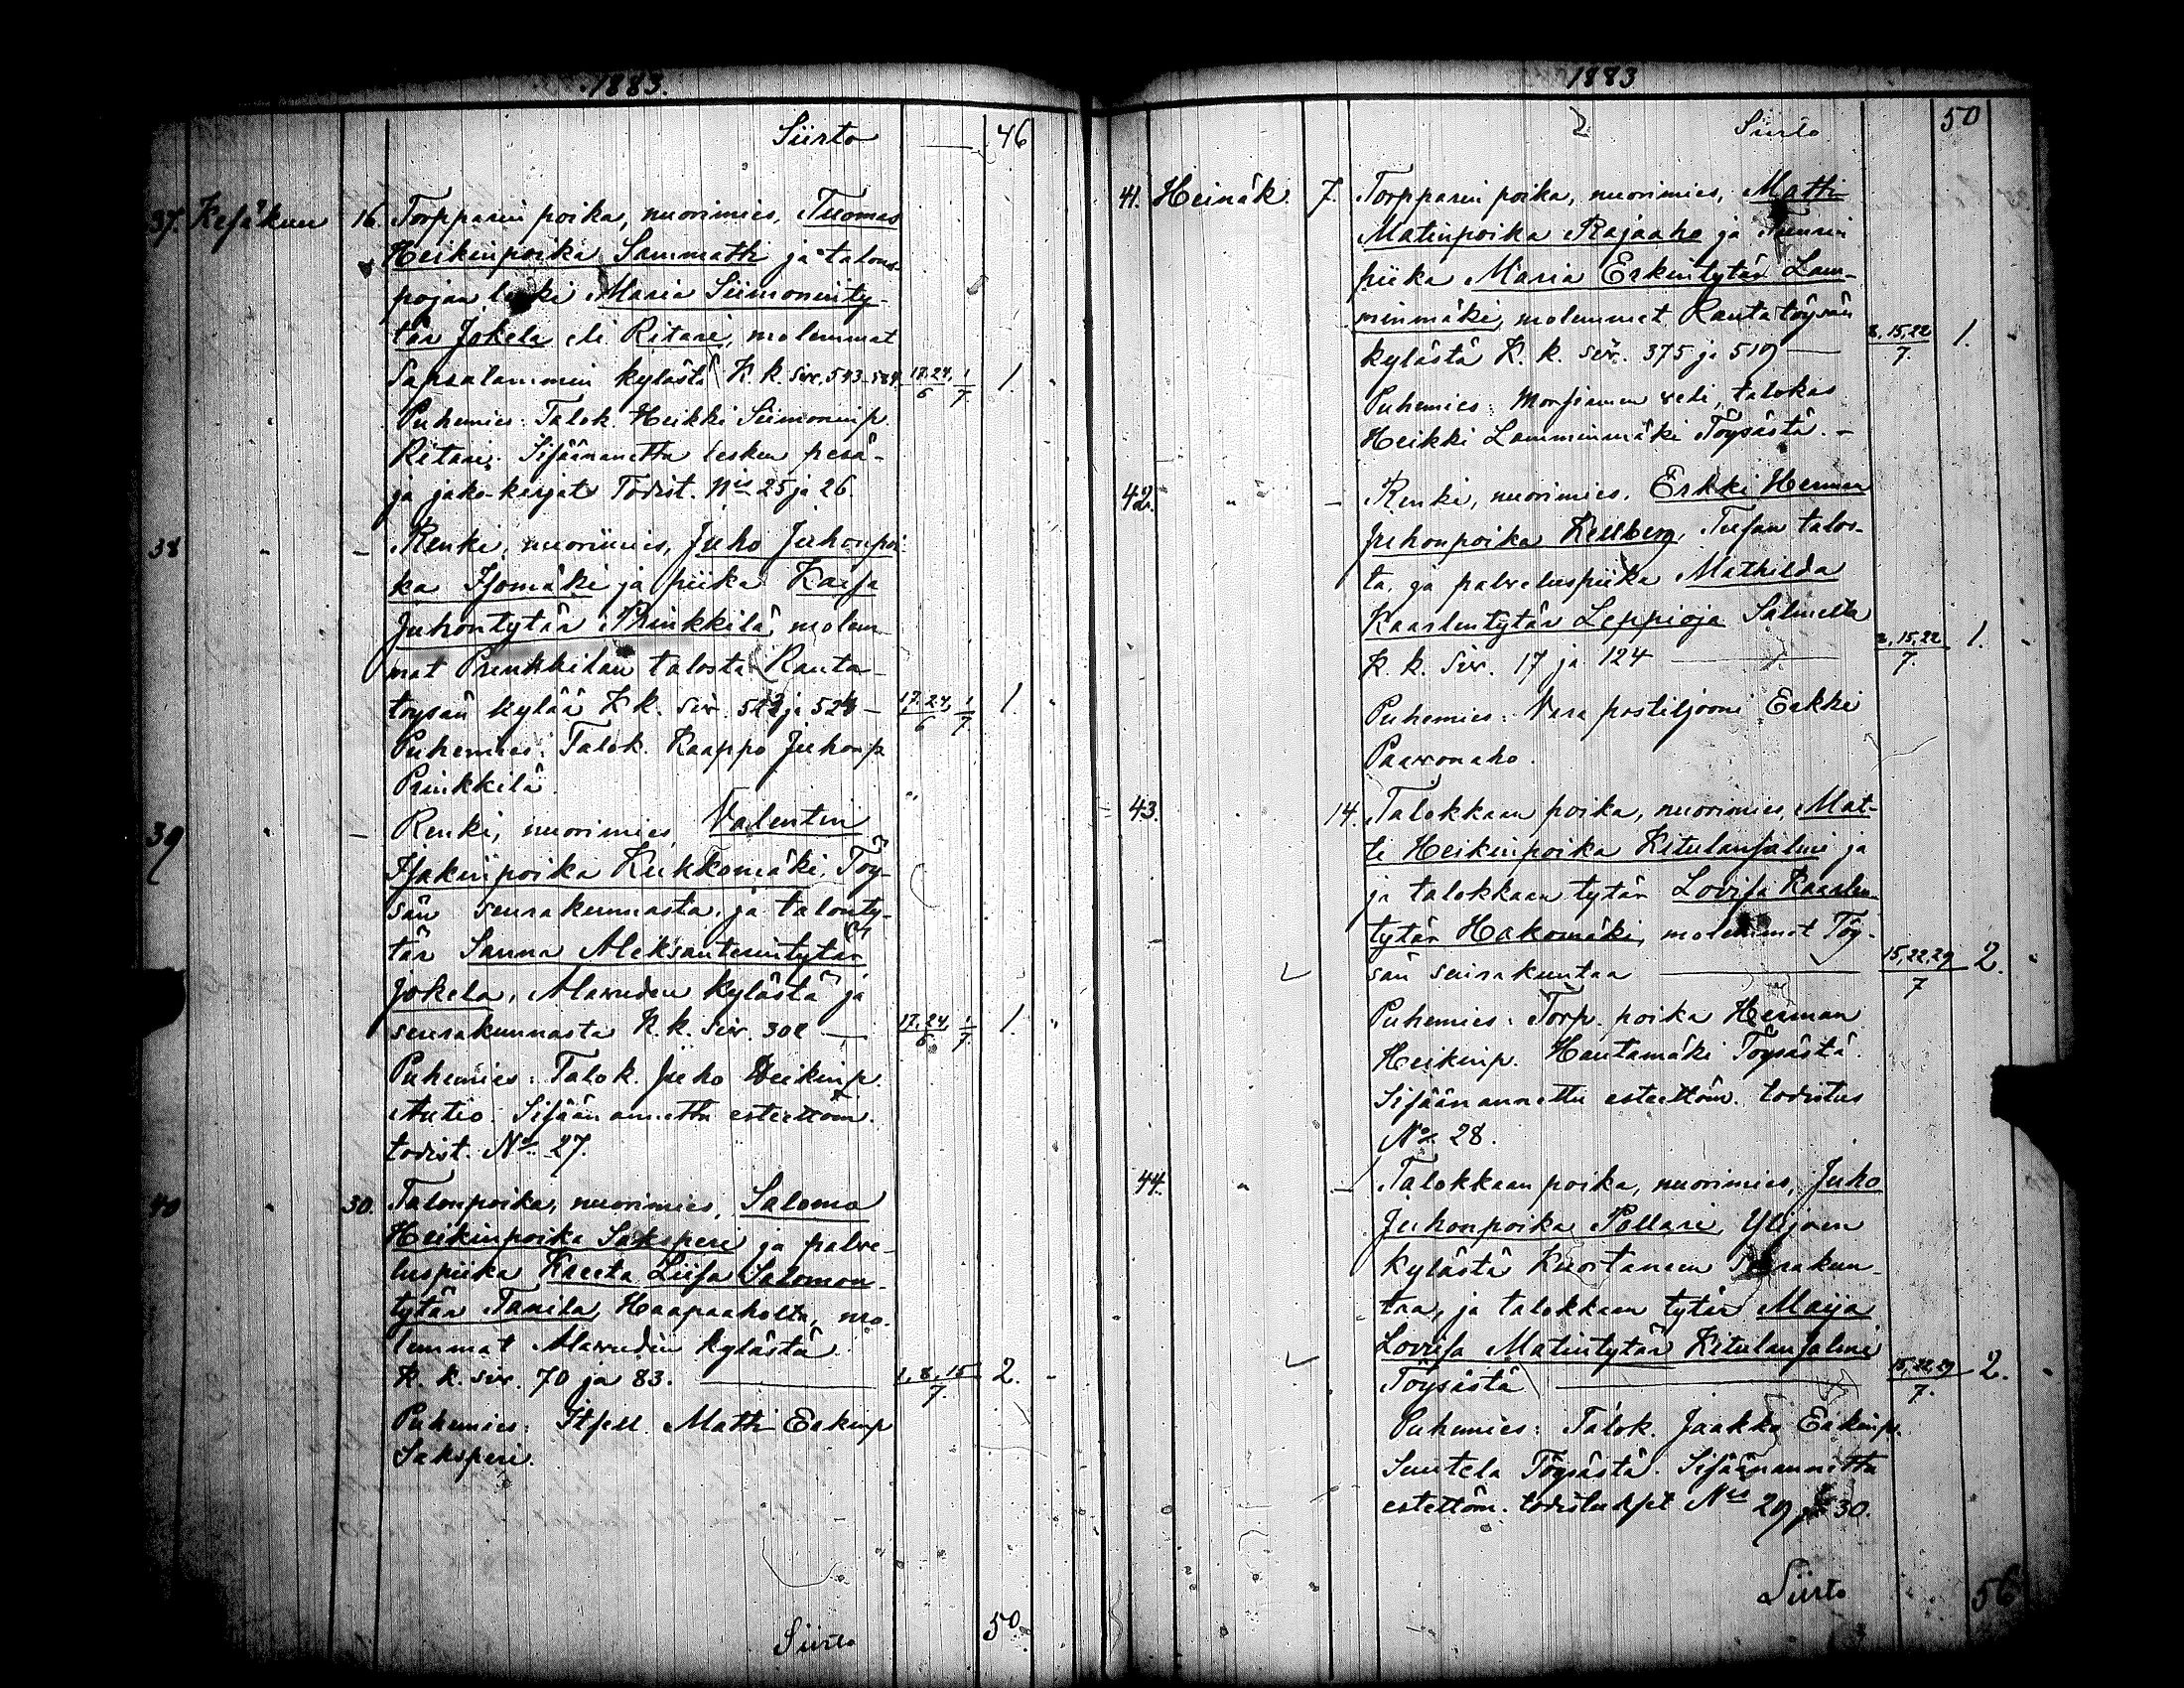 1883.
Siirto 46
37. Kesäkuu 16. Torpparin poika, nuorimies, Tuomas
Heikinpoika Sammatti ja talon-
pojan leski Maria Siimoninty-
tär Jokela eli Ritari, molemmat
Sapsalammin kylästä K. k. siv. 543-584 17.24./6 1/7 1.
Puhemies: Talok. Heikki Siimoninp.
Ritari. Sisäänannettu lesken perä-
ja jako-kirjat Todist. Nis 25 ja 26
38 " – Renki, nuorimies, Juho Juhonpoi-
ka Isomäki ja piika Kaisa
Juhontytär Prinkkilä, molem-
mat Prinkkilän talosta Rauta-
töysän kylää K k. siv. 522 ja 524 – 17.24./6 1/7 1.
Puhemies: Talok. Kaappo Juhonp
Prinkkilä.
39 " – Renki, nuorimies Valentin
Isakinpoika Kukkomäki, Töy-
sän seurakunnasta, ja talonty-
tär Sanna Aleksanterintytär
Jokela, Alavuden kylästä ja
seurakunnasta K. k. siv. 302 – 17.24./6 1/7 1.
Puhemies: Talok. Juho Heikinp.
Autio. Sisäänannettu esteettöm.
todist. No 27.
40 " 30. Talonpoika, nuorimies, Salomo
Heikinpoika Saksperi ja palve-
luspiika Kreeta Liisa Salomon-
tytär Tanila, Haapaaholta, mo-
lemmat Alavuden kylästä
K. k. siv. 70 ja 83. 1, 8, 15/7 2.
Puhemies: Itsell. Matti Erkinp
Saksperi.
Siirto 50.
1883
Siirto 50
41. Heinäk 7. Torpparin poika, nuorimies, Matti
Matinpoika Rajaaho ja
piika Maria Erkintytär Lam-
minmäki, molemmat Rautatöysän
kylästä K. k. siv. 375 ja 519 8, 15, 22/7. 1.
Puhemies: Morsiamen veli, talokas
Heikki Lamminmäki Töysästä. –
42. " – Renki, nuorimies, Erkki Herman
Juhonpoika Kellberg, talos-
ta, ja palveluspiika Mathilda
Kaarlentytär Leppioja Salmelta
K. k. siv. 17 ja 124 8, 15, 22/7. 1.
Puhemies: Vara postiljooni Erkki
Paavonaho.
43. " 14. Talokkaan poika, nuorimies, Mat-
ti Heikinpoika Kitulansalmi ja
ja talokkaan tytär Lovisa Kaarlen
tytär Hakomäki, molemmat Töy-
sän seurakuntaa 15, 22, 29/7 2.
Puhemies: Torp. poika Herman
Heikinp. Hautamäki Töysästä.
Sisäänannettu esteettöm. todistus
No 28.
44. " – Talokkaan poika, nuorimies, Juho
Juhonpoika Pollari, Ylijoen
kylästä Kuortaneen seurakun-
taa, ja talokkaan tytär Maija
Lovisa Matintytär Kitulansalmi
Töysästä 15, 22, 29/7. 2.
Puhemies: Talok. Jaakko Erkinp.
Suutela Töysästä. Sisäänannettu
estettöm. todistukset Nis 29 ja 30.
Siirto 56